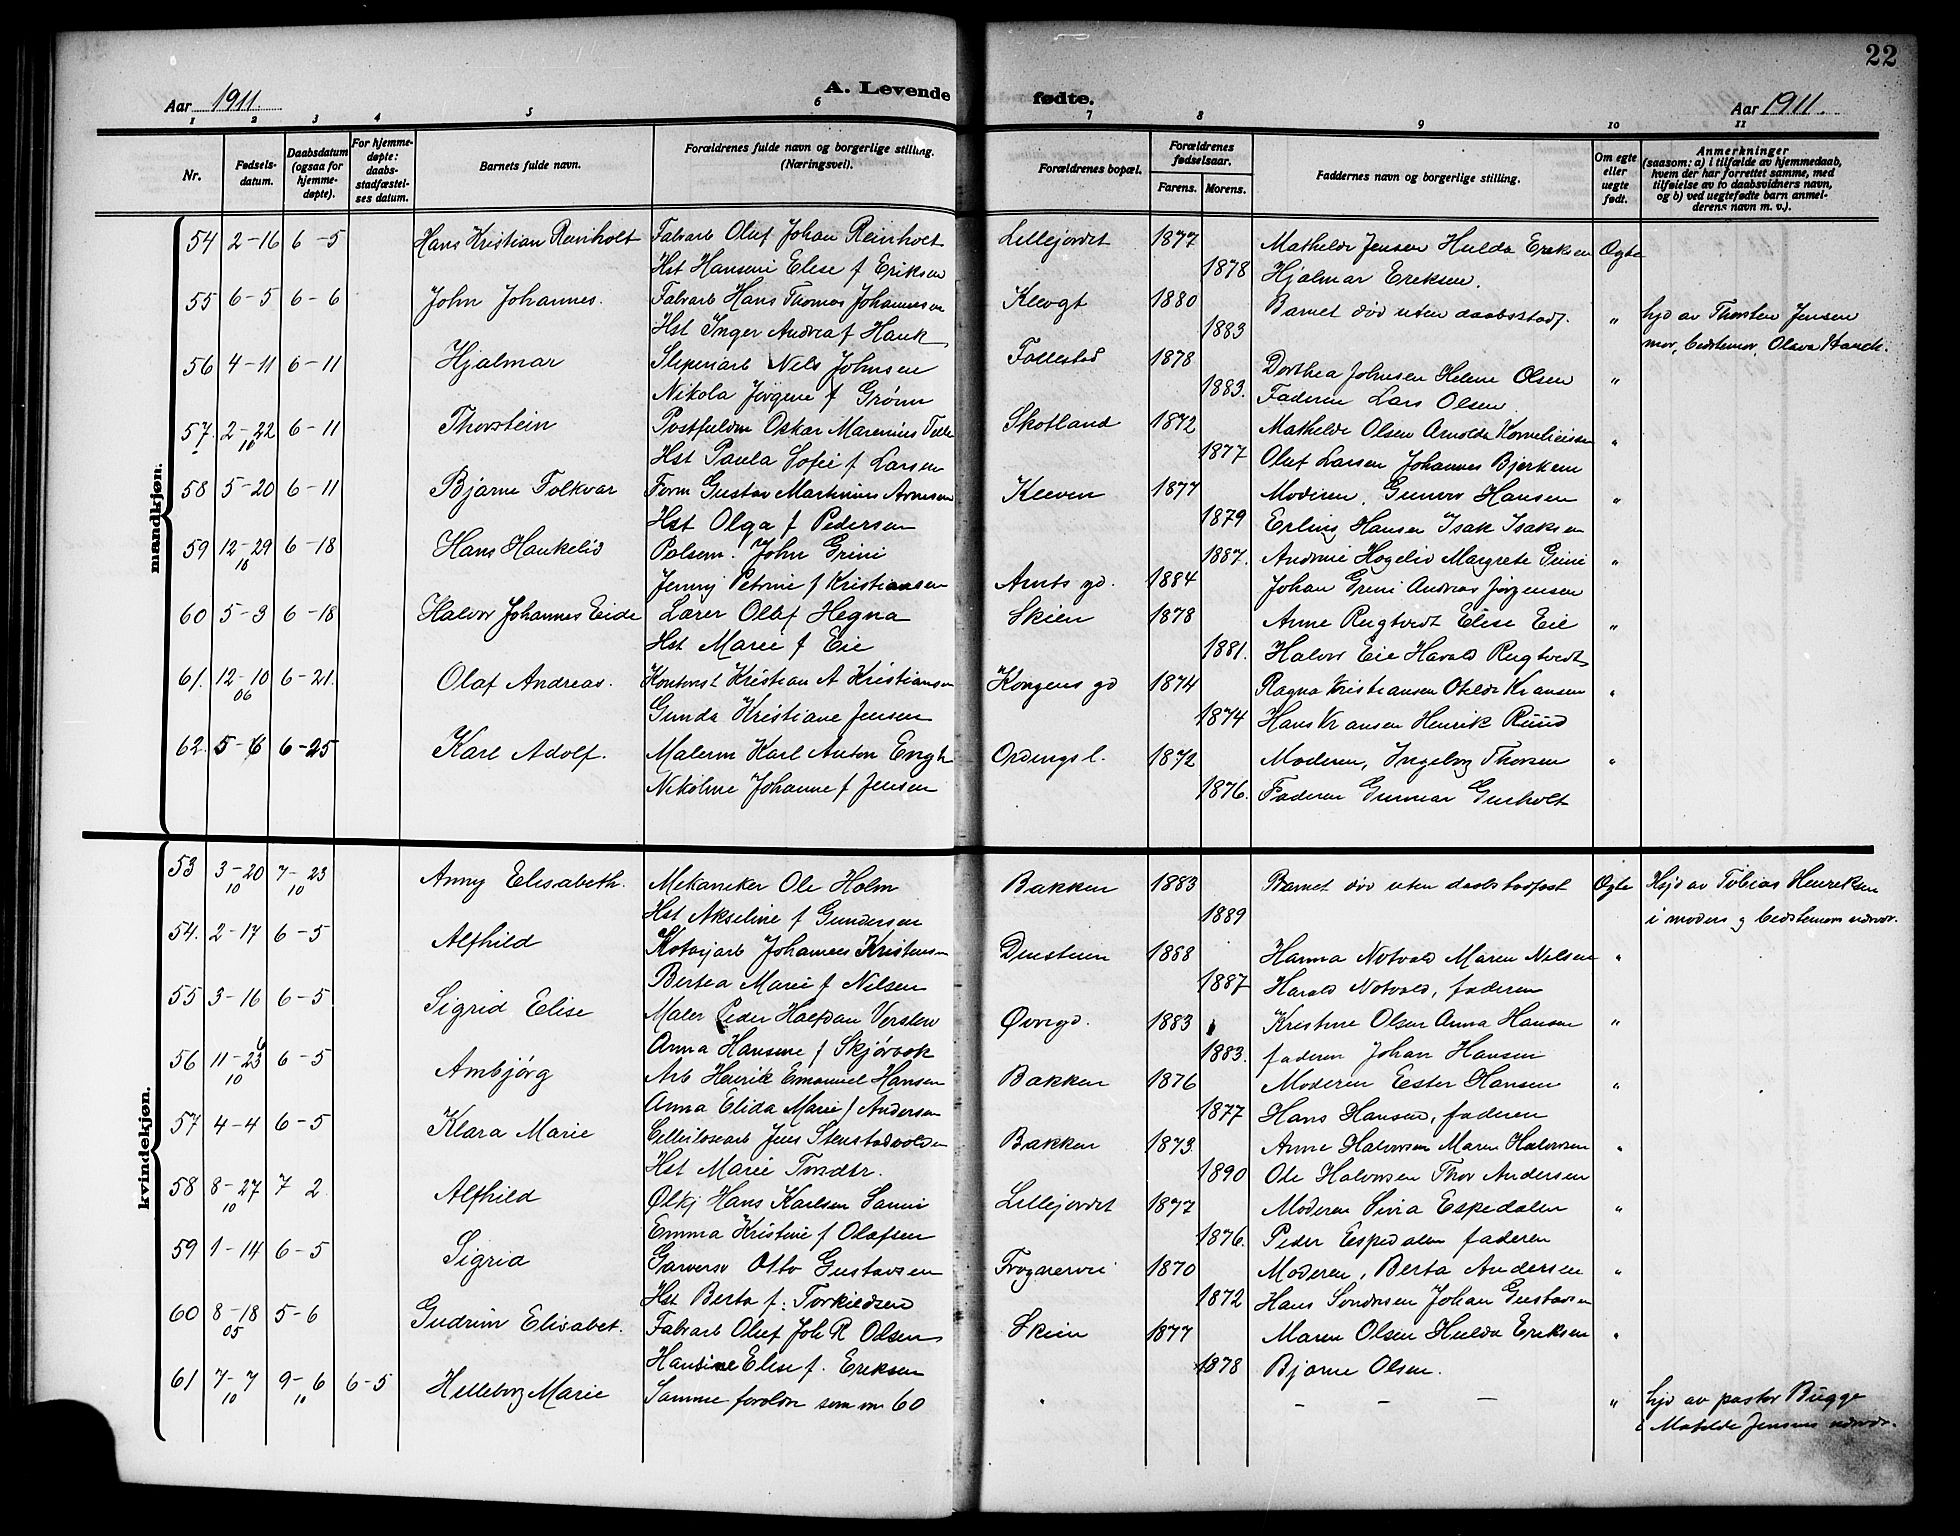 22
Aar 1911.
A. Levende fødte.
Aar 1911.
1 2 3 4 5 6 7 8 9 10 11
Nr.
Fødsels-
datum.
Daabsdatum
(ogsaa for
hjemme-
døpte).
For hjemme-
døpte:
daabs-
stadfæstel-
ses datum.
Barnets fulde navn.
Forældrenes fulde navn og borgerlige stilling.
(Næringsvei).
Forældrenes bopæl.
Forældrenes
fødselsaar.
Farens. Morens.
Faddernes navn og borgerlige stilling.
Om egte
eller
uegte
født.
Anmerkninger
(saasom: a) i tilfælde av hjemmedaab,
hvem der har forrettet samme, med
tilføielse av to daabsvidners navn,
og b) ved uegtefødte barn anmel-
derens navn m. v.).
mandkjøn.
54 2-16 6-5 Hans Kristian Reinholt Fabrarb Oluf Johan Reinholt Lillejordet 1877 Mathilde Jensen Hulda Eriksen Ogte
Hst Hansine Elise f Eriksen 1878 Hjalmar Eriksen.
55 6-5 6-6 John Johannes. Fabrarb Hans Thomas Johannesen Klevgt 1880 Barnet død uten daabsstadf. " hjd av Thorsten Jensen
Hst Inger Andrea f Hauk 1883 mor, bedstemor, Olava Hauck.
56 4-11 6-11 Hjalmar Sliperiarb Nils Johnsen Follestad 1878 Dorthea Johnsen Helene Olsen "
Nikola Jørgine f Grønn 1883. Faderen Lars Olsen
57. 2-22 6-11 Thorstein Postfuldm Oskar Marenius Skotland 1872 Mathilde Olsen Arnolda Korneliussen "
10
Hst Paula Sofie f Larsen 1877 Oluf Larsen Johannes Bjerkem
58 5-20 6-11 Bjarne Folkvar Form Gustav Martinius Arnesen Kleven 1877 Moderen, Gunvor Hansen "
Hst Olga f Pedersen 1879 Erling Hansen Isak Isaksen
59 12-29 6-18 Hans Haukelid Polsem. John Grini 1887. Andrine Hogelid Margrete Grini "
10
Jenny Petrine f Kristiansen Amts gd. 1884 Johan Grini Andreas Jørgensen
60 5-3 6-18 Halvor Johannes Eide Lærer Ollaf Hegna Skien 1878 Anne Rugtvedt Elise Eie "
Hst Marie f Eie 1881. Halvor Eie Harald Rugtvedt
61. 12-10 6-21. Olaf Andreas. Kontorist Kristian A Kristiansen Kongens gd 1874 Ragna Kristiansen Otilde Kransen "
06
Gunda Kristiane Jensen 1874 Hans Kransen Henrik Ruud
62. 5-6 6-25 Karl Adolf. Malerm Karl Anton Engh Ordengsl. 1872 Moderen, Ingeborg Thorsen "
Nikoline Johanne f Jensen 1876. Faderen Gunnar Gusholt
kvindekjøn.
53 3-20 7-23 Anny Elisabeth. Mekaniker Ole Holm Bakken 1883 Barnet død uten daabstadfæst Ogte Hjd av Tobias Henriksen
10 10
Hst Akseline f Gundersen 1889 i moders og bedstemors nærvær.
54. 2-17 6-5 Alfhild Johannes Kristensen 1888 Hanna Notvald Maren Nilsen "
Bertea Marie f Nilsen 1887 Harald Notvald, faderen
55 3-16 6-5 Sigrid Elise Maler Peder Halfdan Øvregd. 1883 Kristine Olsen Anna Hansen "
Anna Hansine f Skjørbek 1883. faderen Johan Hansen
56 11-23 6-5 Ambjørg Arb Henrik Emanuel Hansen Bakken 1876 Moderen Ester Hansen "
10
Anna Elida Marie f Andersen 1877 Hans Hansen, faderen
57 4-4 6-5 Klara Marie Cellulosearb Jens Stenstadvolden Bakken 1873. Anne Halvorsen Maren Halvorsen "
Hst Marie Torsdtr. 1890 Ole Halvorsen Thor Andersen
58 8-27 7 2 Alfhild Ølkj Hans Karlsen Sanni Lillejordet 1877 Moderen Sivia Espedalen "
10
Emma Kristine f Olafsen 1876. Peder Espedalen faderen
59 1-14 6-5 Sigrid Garversv Otto Gustavsen Frognervei 1870 Moderen, Berta Andersen "
Hst Berta f. Torkildsen 1872 Hans Sondresen Johan Gustavsen
60 8-18 5-6 Gudrun Elisabet. Fabrarb Oluf Joh R Olsen Skien 1877 Maren Olsen Hulda Eriksen "
05
Hansine Elise f. Eriksen 1878 Bjarne Olsen.
61 7-7 9-6 6-5 Helleborg Marie Samme forældre som nr 60 " - - - " hjd av pastor Bugge
10 10
i Matilde Jensens nærvær.